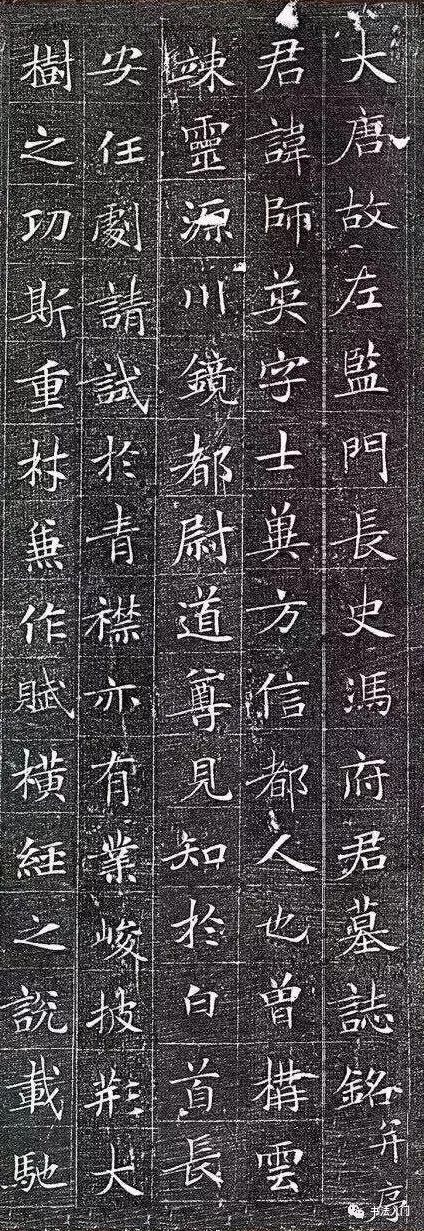 大唐故左監門長史馮府君墓誌銘并序
君諱師英字士兾方信都人也曾構雲
竦靈源川鏡都尉道尊見知於白首長
安任劇請試於青襟亦有業峻披荆大
樹之功斯重材兼作賦橫經之說載馳
书法入门